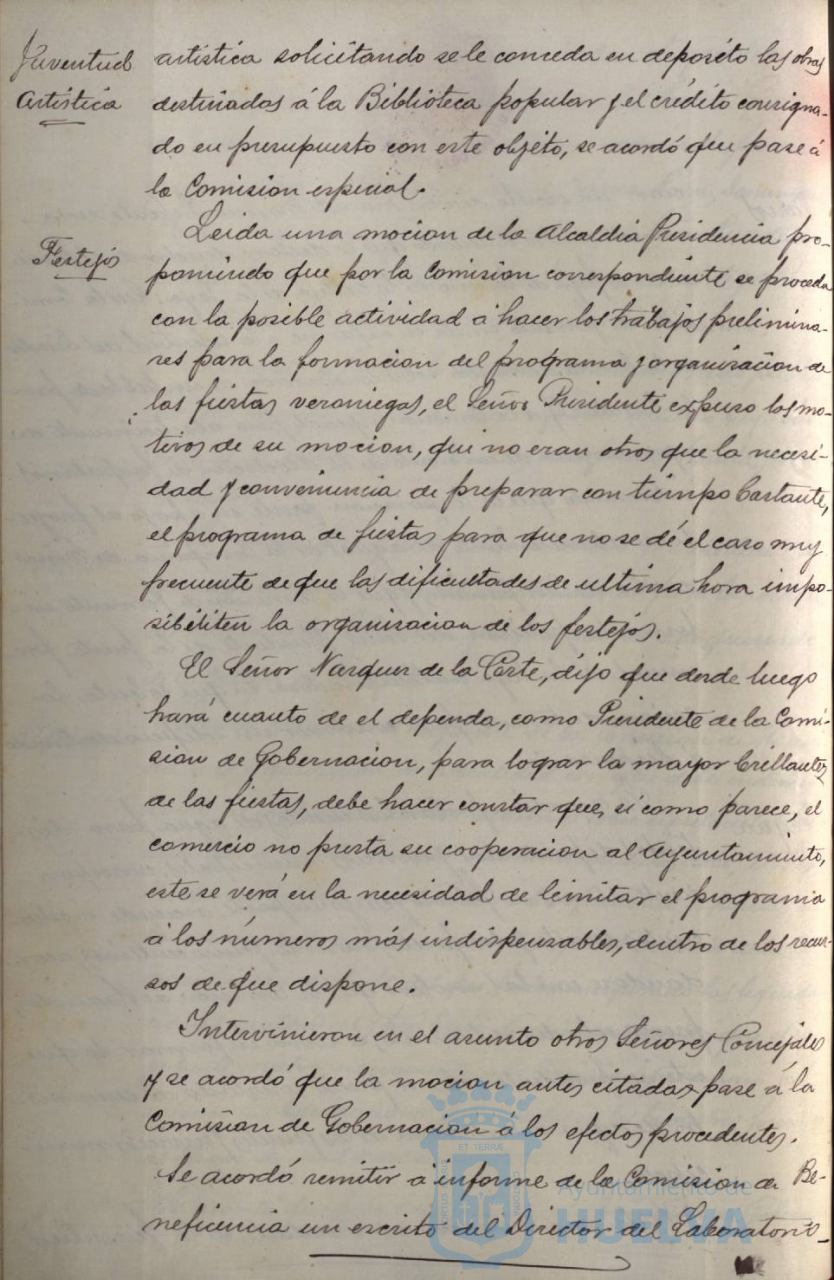 Juventud
Artística
artística solicitando se le conceda en depósito las obras
destinadas á la Biblioteca popular y el crédito consigna-
do en presupuesto con este objeto, se acordó que pase á
la Comision especial.
Festejos
Leida una mocion de la Alcaldia Presidencia pro-
poniendo que por la Comision correspondiente se proceda
con la posible actividad á hacer los trabajos prelimina-
res para la formacion del programa y organizacion de
las fiestas veraniegas, el Señor Presidente expuso los mo-
tivos de su mocion, que no eran otros que la necesi-
dad y conveniencia de preparar con tiempo bastante,
el programa de fiestas para que no se dé el caso muy
frecuente de que las dificultades de ultima hora impo-
sibiliten la organizacion de los festejos.
El Señor Vazquez de la Corte, dijo que desde luego
hará cuanto de el dependa, como Presidente de la Comi-
sion de Gobernacion, para lograr la mayor brillantez
de las fiestas, debe hacer constar que, si como parece, el
comercio no presta su cooperacion al Ayuntamiento,
este se verá en la necesidad de limitar el programa
á los números más indispensables, dentro de los recur-
sos de que dispone.
Intervinieron en el asunto otros Señores Concejales
y se acordó que la mocion antes citada pase á la
Comision de Gobernacion á los efectos procedentes.
Se acordó remitir á informe de la Comision de Be-
neficencia un escrito del Director del Laboratorio
Ayuntamiento de
HUELVA